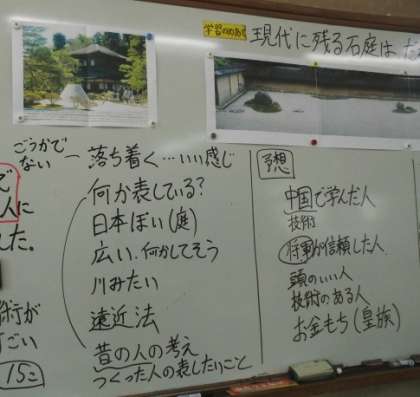 学習のめあて
現代に残る石庭は、だ
ごうかで
ない
落ち着く…いい感じ
で
人に
した。
術が
ごい
15こ
何か表している?
日本ぽい(庭)
広い、何かしてそう
川みたい
遠近法
昔の人の考え
つくった人の表したいこと
予想
中国で学んだ人
技術
将軍が信頼した人
頭のいい人
技術のある人
お金もち(皇族)